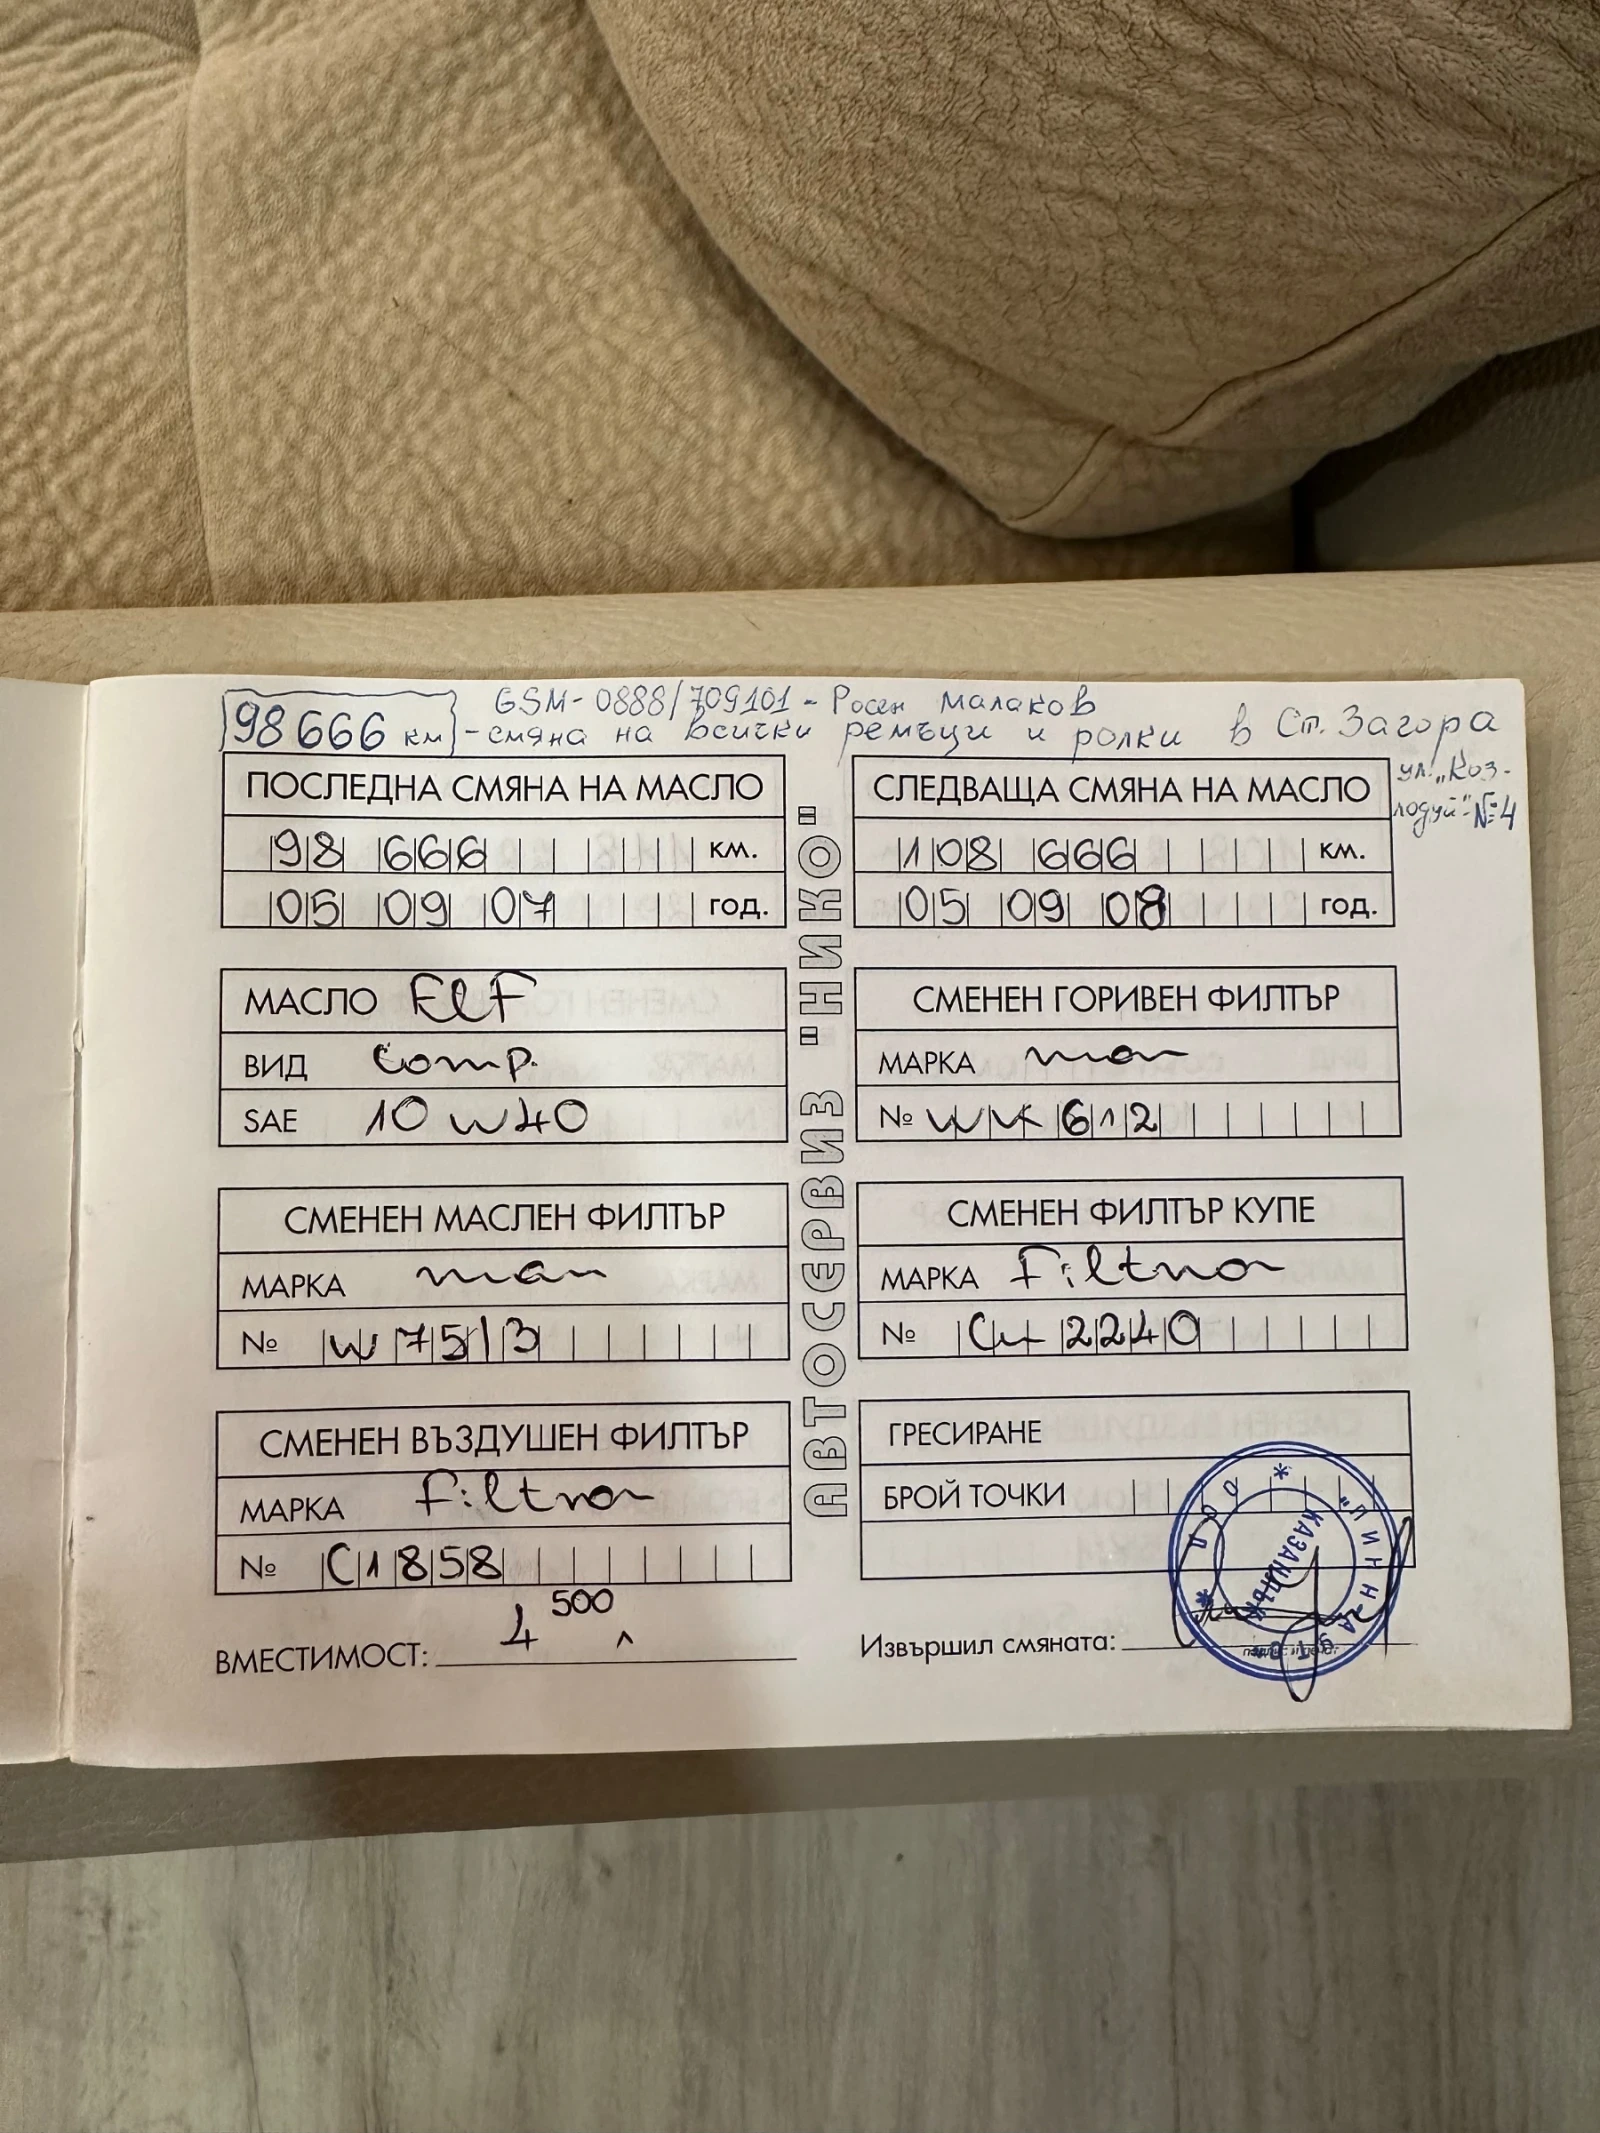 GSM-0888/709101 - Росен Малаков
98 666 км - смяна на всички ремъци и ролки в Ст. Загора
ул. "Коз-
лодуй" №4
ПОСЛЕДНА СМЯНА НА МАСЛО
98 666 км.
05 09 07 год.
МАСЛО ELF
ВИД Comp.
SAE 10 w40
СМЕНЕН МАСЛЕН ФИЛТЪР
МАРКА man
№ W 75/3
СМЕНЕН ВЪЗДУШЕН ФИЛТЪР
МАРКА Filtron
№ C1858
ВМЕСТИМОСТ: 4 500
АВТОСЕРВИЗ "НИКО"
СЛЕДВАЩА СМЯНА НА МАСЛО
108 666 км.
05 09 08 год.
СМЕНЕН ГОРИВЕН ФИЛТЪР
МАРКА man
№ WK 612
СМЕНЕН ФИЛТЪР КУПЕ
МАРКА Filtron
№ CU 2240
ГРЕСИРАНЕ
БРОЙ ТОЧКИ
Извършил смяната:
КАЗАНЛЪК